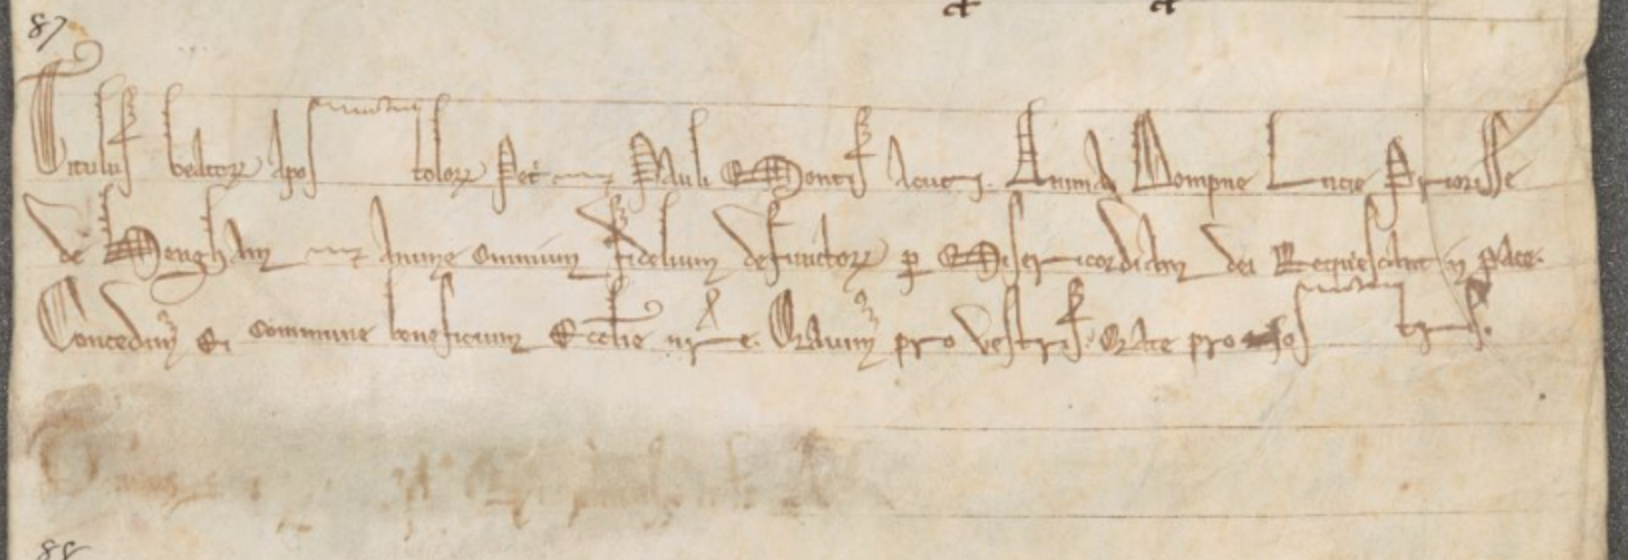 87
Titulus beatorꝝ apostolorꝝ Pet⁊ Pauli Montis Acuti. Anima Dompne Lucie Priorisse
de Hengham ⁊ anime omnium fidelium defunctorꝝ ꝑ Misericordiam dei Requiescant in pace.
Concedimꝰ ei commune beneficium Ecclie nre. Oramꝰ pro vestris: Orate pro nostris.
88